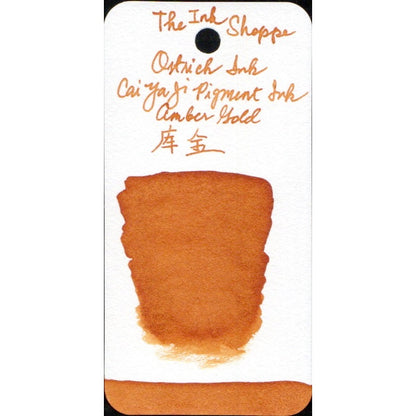 The Ink Shoppe
Ostrich Ink
Cai Ya Ji Pigment Ink
Amber Gold
库金